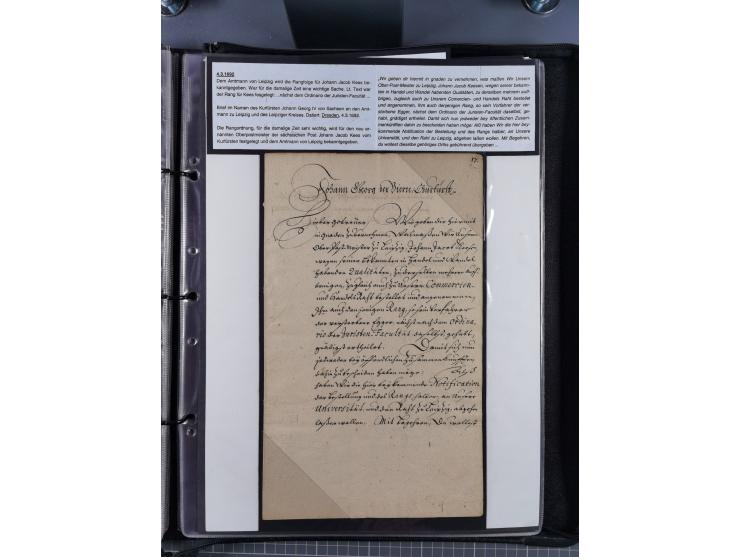 4.3.1692
Dem Amtmann von Leipzig wird die Rangfolge für Johann Jacob Kees be-
kanntgegeben. War für die damalige Zeit eine wichtige Sache. Lt. Text war
der Rang für Kees festgelegt: ...nächst dem Ordinario der Juristen-Facultät ...
Brief im Namen des Kurfürsten Johann Georg IV von Sachsen an den Amt-
mann zu Leipzig und des Leipziger Kreises, Datiert: Dresden, 4.3.1692.
Die Rangordnung, für die damalige Zeit sehr wichtig, wird für den neu er-
nannten Oberpostmeister der sächsischen Post Johann Jacob Kees vom
Kurfürsten festgelegt und dem Amtmann von Leipzig bekanntgegeben.
„Wir geben dir hiermit in gnaden zu vernehmen, was maßen Wir Unsern
Ober-Post-Meister zu Leipzig, Johann Jacob Keesen, wegen seiner bekann-
ten in Handel und Wandel habenden Qualitäten, zu demselben mehrern auf-
bringen, zugleich auch zu Unserm Comercien- und Handels Raht bestellet
und angenommen, Ihm auch derjenigen Rang, so sein Vorfahrer der ver-
storbene Egger, nächst dem Ordinario der Juristen Facultät daselbst, ge-
habt, gnädigst ertheilet. Damit sich nun jedweder bey öffentlichen Zusam-
menkünfften dahin zu bescheiden haben möge: Alß haben Wir die hier bey-
kommende Notification der Bestellung und des Ranges halber, an Unsere
Universität, und den Raht zu Leipzig, abgehen laßen wollen. Mit Begehren,
du wollest dieselbe gehöriges Orths gebührend übergeben ...
17.
Johann Georg der Vierte, Churfürst.
Lieber getreüer, Wir geben dir hiermit
in gnaden zu vernehmen, was maßen Wir Unsern
Ober Post Meister zu Leipzig, Johann Jacob Keesen,
wegen seiner bekannten in Handel und Wandel
habenden Qualitäten, zu demselben mehrern auf-
bringen, zugleich auch zu Unserm Commercien-
und Handels Raht bestellet und angenommen,
Ihm auch derjenigen Rang, so sein Vorfahrer
der verstorbene Egger, nächst dem Ordina-
rio der Juristen Facultät daselbst gehabt,
gnädigst ertheilet. Damit sich nun
jedweder bey öffentlichen Zusammenkünfften
dahin zu bescheiden haben möge: Alß
haben Wir die hier beykommende Notification
der Bestellung und des Rangs halber, an Unsere
Universität, und den Raht zu Leipzig, abgehen
laßen wollen. Mit Begehren, Du wollest